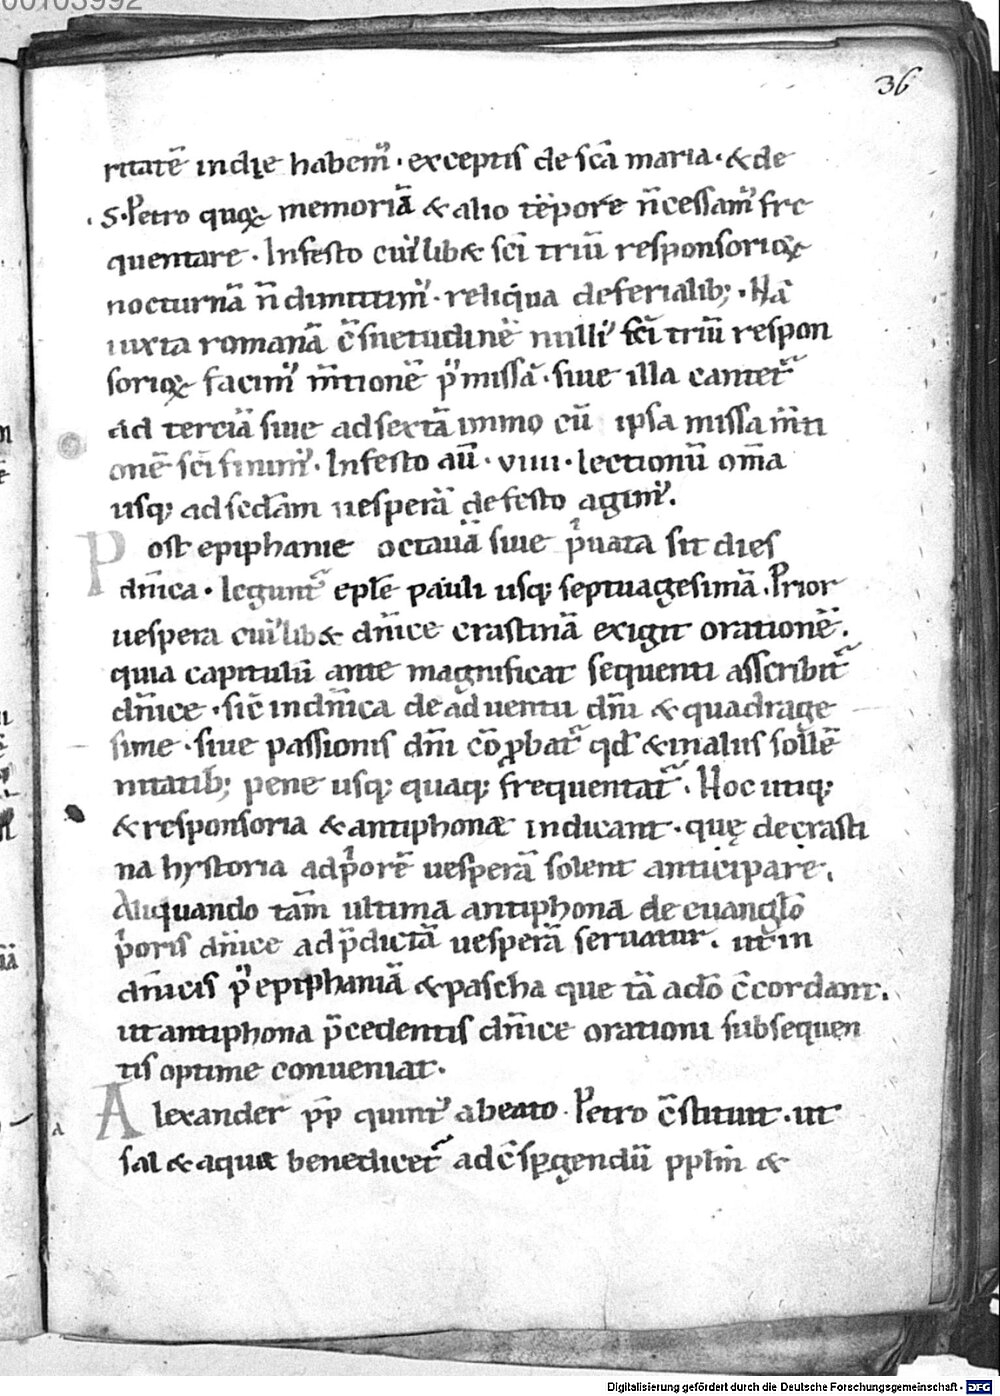 00103992
36
ritatē indie habem᷒ · exceptis de scā maria · & de
· S · Petro quoꝝ memoriā & alio tēpore n̄cessam᷒ fre
quentare · Infesto cui᷒lib& sc̄i triū responsorioꝝ
nocturnā n̄ dimittim᷒ · reliq̇ua deferialib; · Nā
iuxta romanā c̄suetudinē nulli᷒ sc̄i triū respon
sorioꝝ facim᷒ m̄tionē p᷒ missā · siue illa cantet᷑
ad terciā siue adsextā immo cū ipsa missa m̄ti
onē sc̄i finim᷒ · Infesto aū · viiii · lectionū om̄a
usq; adsecd̄am uesperā defesto agim᷒.
Post epiphanie octauā siue p̍uata sit dies
dn̄ica · legunt᷑ epl̄e pauli usq; septuagesimā · Prior
uespera cui᷒lib& dn̄ice crastinā exigit orationē.
quia capitulū ante magnificat sequenti asscribit᷑
dn̄ice · sic̄ indn̄ica deaduentu dn̄i & quadrage
sime · siue passionis dn̄i cō ꝓbat᷑ qd̄ & inaliis sollē
nitatib; pene usq; quaq; frequentat᷑ · Hoc utiq;
& responsoria & antiphonæ indicant · quę decrasti
na hystoria adp̍orē uesperā solent anticipare.
Aliquando tam̄ ultima antiphona de euangl̄o
p̍oris dn̄ice ad p̄dictā uesperā seruatur. ut in
dn̄icis p᷒ epiphaniā & pascha que tā adō c̄cordant.
ut antiphona p̄cedentis dn̄ice orationi subsequen
tis optime conueniat.
Alexander pp̄ quint᷒ abeato · Petro c̄stituit · ut
sal & aqua benedicet᷑ ad c̄sp̱gendū ppl̄m &
Digitalisierung gefördert durch die Deutsche Forschungsgemeinschaft - DFG